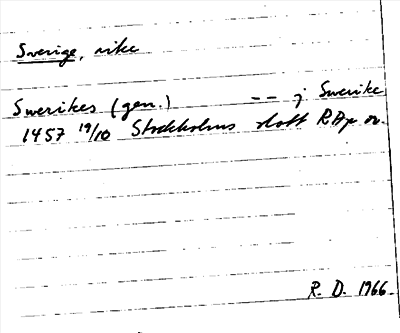 Sverige, rike
Swerikes (gen.) -- j Swerike
1457 19/10 Stockholms slott RAp or.
R. D. 1966.